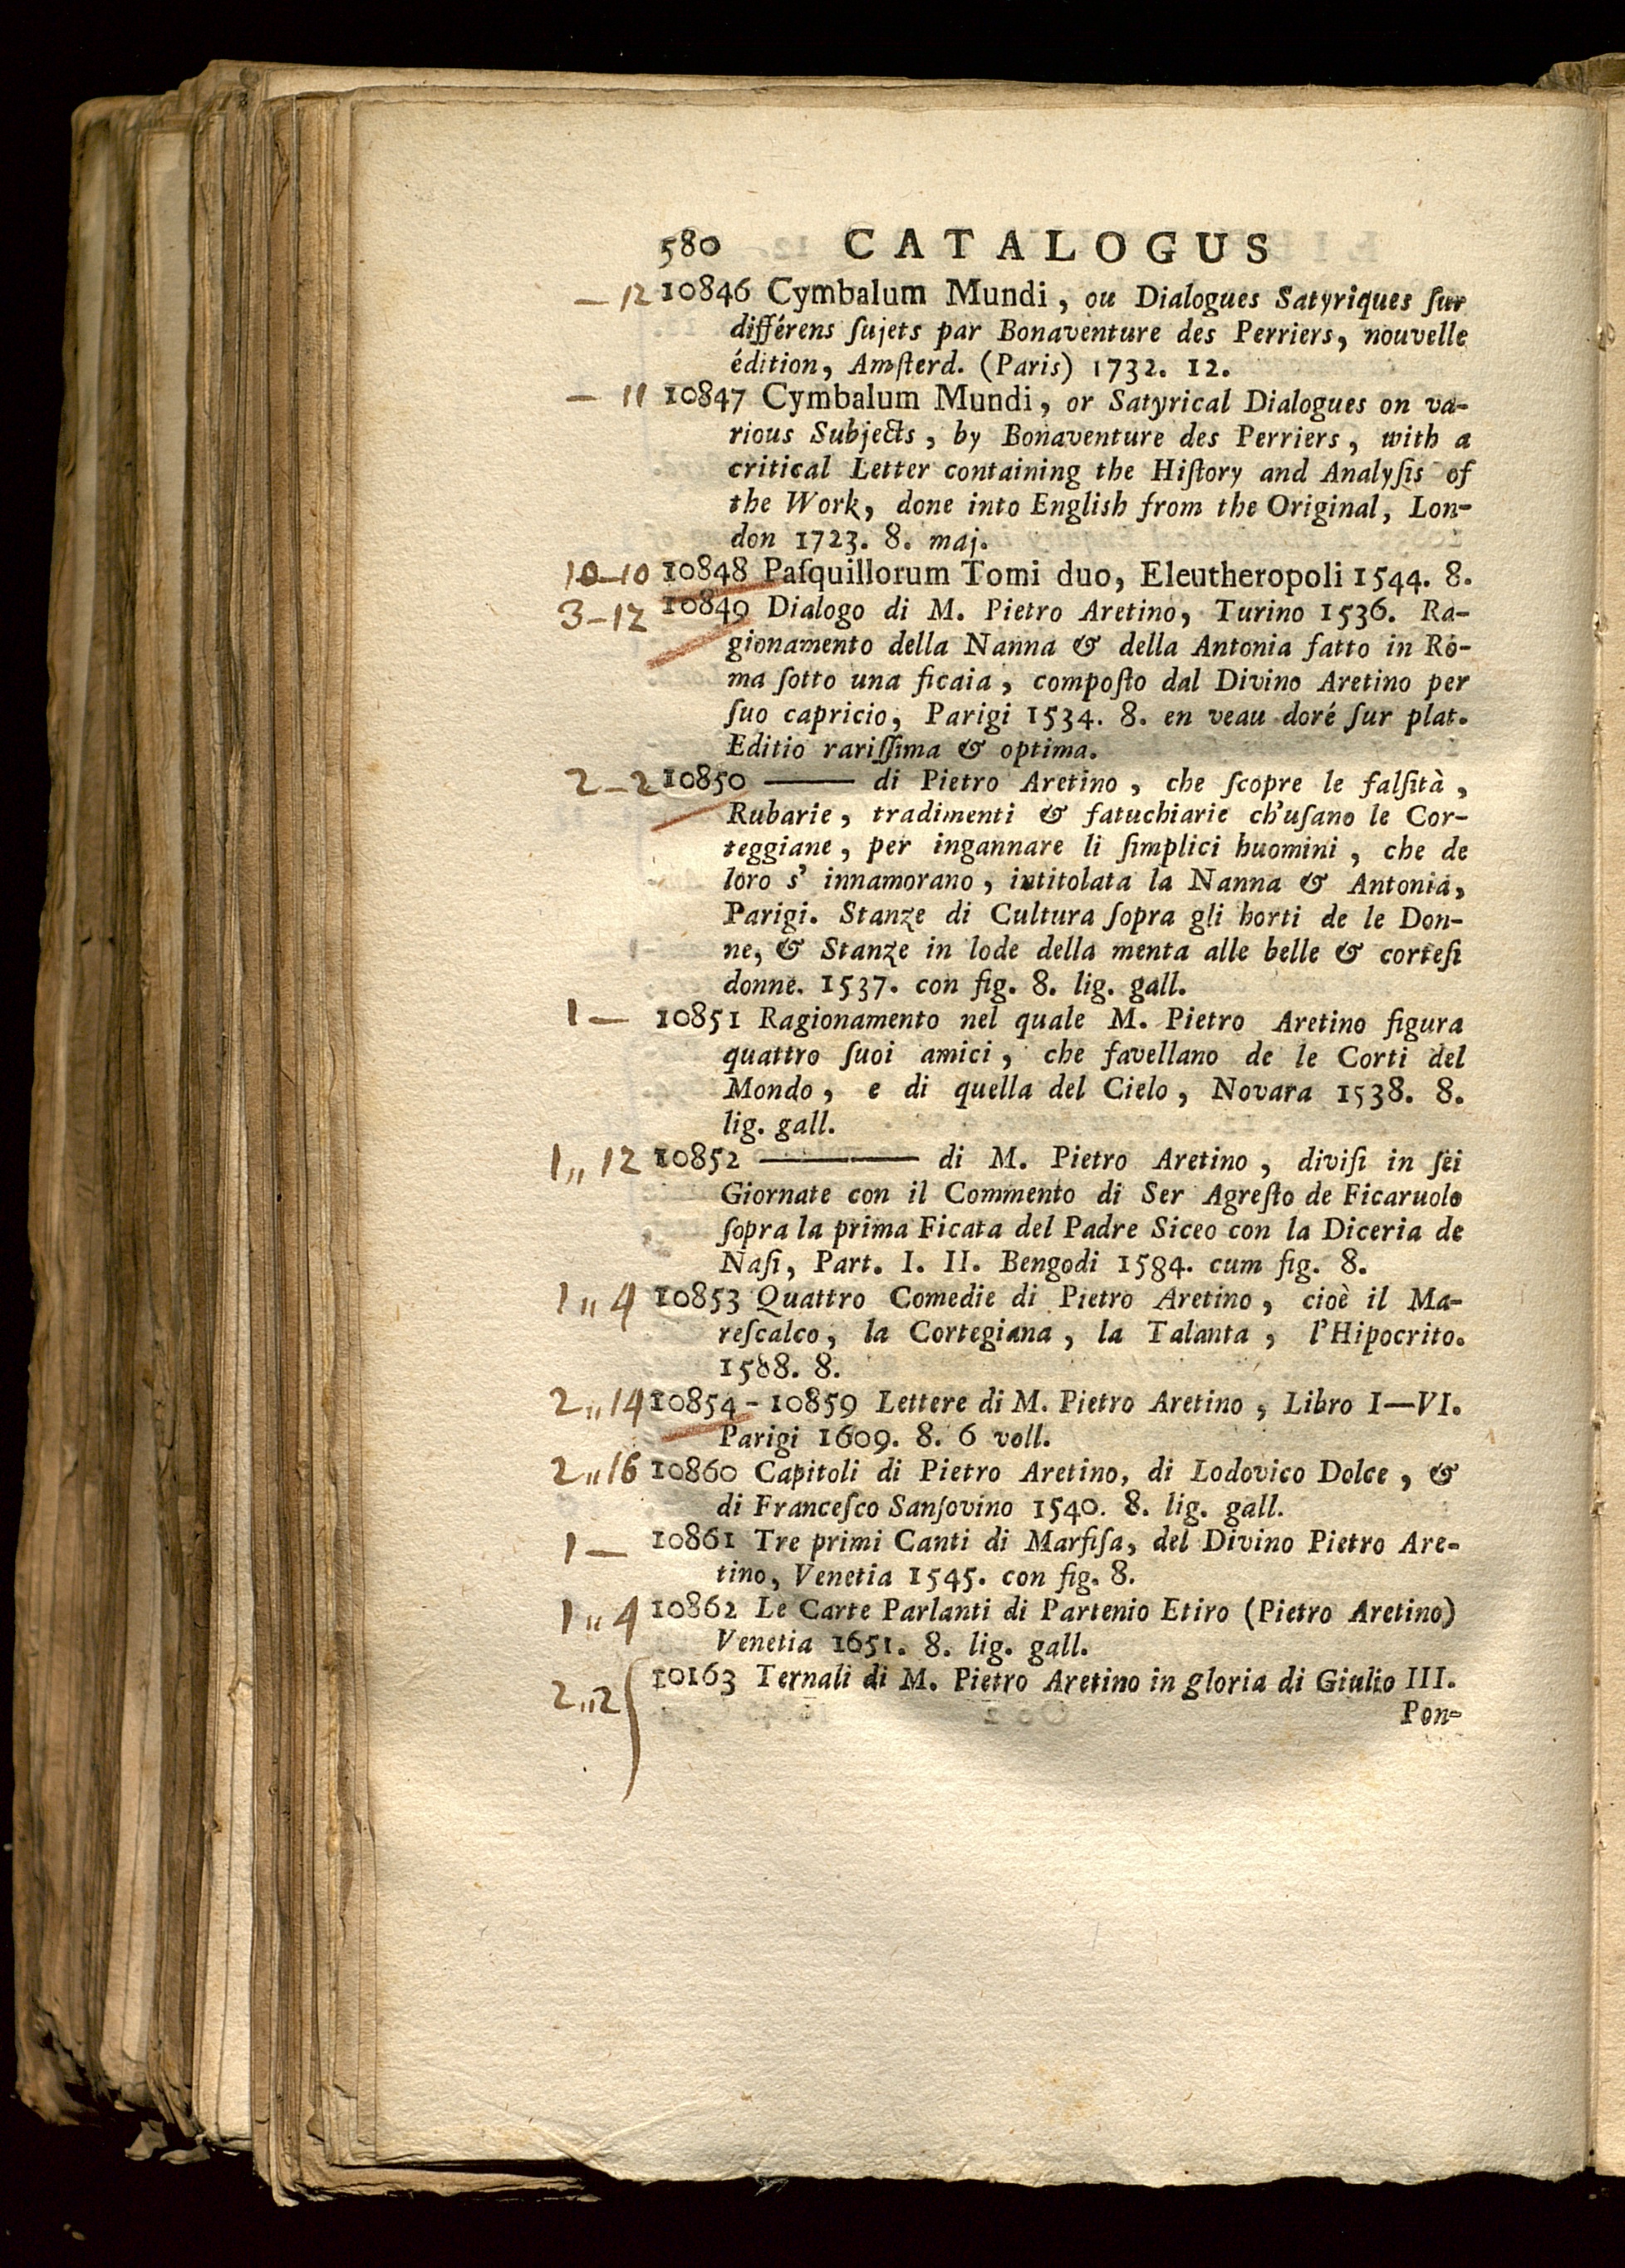 580 CATALOGUS
— 12 10846 Cymbalum Mundi, ou Dialogues Satyriques ſur
différens ſujets par Bonaventure des Perriers, nouvelle
édition, Amſterd. (Paris) 1732. 12.
— 11 10847 Cymbalum Mundi, or Satyrical Dialogues on va-
rious Subjects, by Bonaventure des Perriers, with a
critical Letter containing the Hiſtory and Analyſis of
the Work, done into English from the Original, Lon-
don 1723. 8. maj.
10–10 10848 Paſquillorum Tomi duo, Eleutheropoli 1544. 8.
3–12 10849 Dialogo di M. Pietro Aretino, Turino 1536. Ra-
gionamento della Nanna & della Antonia fatto in Ro-
ma ſotto una ficaia, compoſto dal Divino Aretino per
ſuo capricio, Parigi 1534. 8. en veau doré ſur plat.
Editio rariſſima & optima.
2–2 10850 —— di Pietro Aretino, che ſcopre le falſità,
Rubarie, tradimenti & fatuchiarie ch'uſano le Cor-
teggiane, per ingannare li ſimplici huomini, che de
loro s' innamorano, intitolata la Nanna & Antonia,
Parigi. Stanze di Cultura ſopra gli horti de le Don-
ne, & Stanze in lode della menta alle belle & corteſi
donne. 1537. con fig. 8. lig. gall.
1 — 10851 Ragionamento nel quale M. Pietro Aretino figura
quattro ſuoi amici, che favellano de le Corti del
Mondo, e di quella del Cielo, Novara 1538. 8.
lig. gall.
1 „ 12 10852 ——— di M. Pietro Aretino, diviſi in ſei
Giornate con il Commento di Ser Agreſto de Ficaruolo
ſopra la prima Ficata del Padre Siceo con la Diceria de
Naſi, Part. I. II. Bengodi 1584. cum fig. 8.
1 „ 4 10853 Quattro Comedie di Pietro Aretino, cioè il Ma-
reſcalco, la Cortegiana, la Talanta, l'Hipocrito.
1588. 8.
2 „ 14 10854 - 10859 Lettere di M. Pietro Aretino, Libro I—VI.
Parigi 1609. 8. 6 voll.
2 „ 16 10860 Capitoli di Pietro Aretino, di Lodovico Dolce, &
di Franceſco Sanſovino 1540. 8. lig. gall.
1 — 10861 Tre primi Canti di Marfiſa, del Divino Pietro Are-
tino, Venetia 1545. con fig. 8.
1 „ 4 10862 Le Carte Parlanti di Partenio Etiro (Pietro Aretino)
Venetia 1651. 8. lig. gall.
2 „ 2 { 10163 Ternali di M. Pietro Aretino in gloria di Giulio III.
Pon-